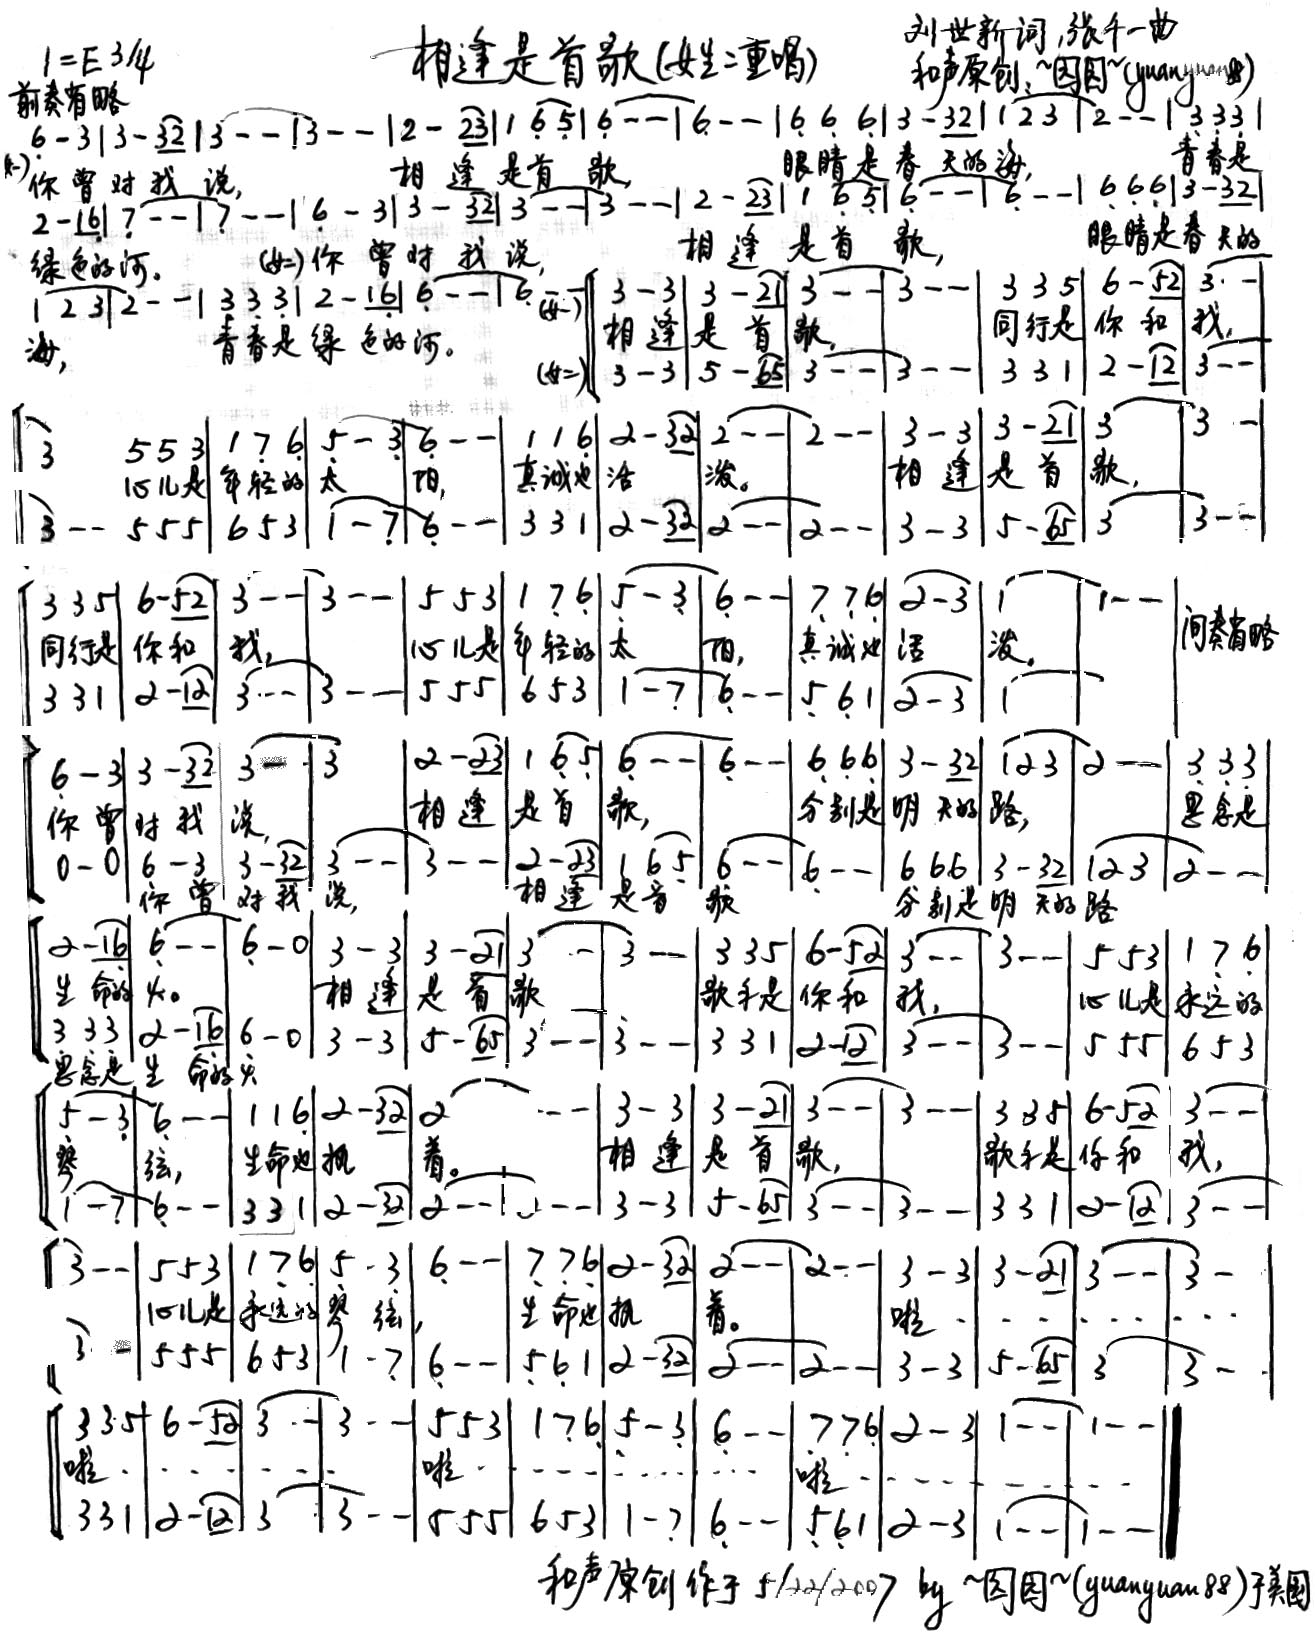 相逢是首歌(女生二重唱)
刘世新词,张千一曲
1=E 3/4
和声原创:~囡囡~(yuanyuan88)
前奏省略
6 - 3 | 3 - 32 | 3 - - | 3 - - | 2 - 23 | 1 6 5 | 6 - - | 6 - - | 6 6 6 | 3 - 32 | 1 2 3 | 2 - - | 3 3 3 |
(女一) 你曾对我说, 相逢是首歌, 眼睛是春天的海, 青春是
2 - 16 | 7 - - | 7 - - | 6 - 3 | 3 - 32 | 3 - - | 3 - - | 2 - 23 | 1 6 5 | 6 - - | 6 - - | 6 6 6 | 3 - 32 |
绿色的河。 (女二) 你曾对我说, 相逢是首歌, 眼睛是春天的
1 2 3 | 2 - - | 3 3 3 | 2 - 16 | 6 - - | 6 - - (女一) 3 - 3 | 3 - 21 | 3 - - | 3 - - | 3 3 5 | 6 - 52 | 3 - -
海, 青春是绿色的河。 相逢是首歌, 同行是你和我,
(女二) 3 - 3 | 5 - 65 | 3 - - | 3 - - | 3 3 1 | 2 - 12 | 3 - -
3 5 5 3 | 1 7 6 | 5 - 3 | 6 - - | 1 1 6 | 2 - 32 | 2 - - | 2 - - | 3 - 3 | 3 - 21 | 3 | 3 -
心儿是年轻的太阳, 真诚也活泼。 相逢是首歌,
3 - - 5 5 5 | 6 5 3 | 1 - 7 | 6 - - | 3 3 1 | 2 - 32 | 2 - - | 2 - - | 3 - 3 | 5 - 65 | 3 | 3 - -
3 3 5 | 6 - 52 | 3 - - | 3 - - | 5 5 3 | 1 7 6 | 5 - 3 | 6 - - | 7 7 6 | 2 - 3 | 1 | 1 - - |
同行是你和我, 心儿是年轻的太阳, 真诚也活泼。 间奏省略
3 3 1 | 2 - 12 | 3 - - | 3 - - | 5 5 5 | 6 5 3 | 1 - 7 | 6 - - | 5 6 1 | 2 - 3 | 1 |
6 - 3 | 3 - 32 | 3 - - | 3 | 2 - 23 | 1 6 5 | 6 - - | 6 - - | 6 6 6 | 3 - 32 | 1 2 3 | 2 - - | 3 3 3
你曾对我说, 相逢是首歌, 分别是明天的路, 思念是
0 - 0 | 6 - 3 | 3 - 32 | 3 - - | 3 - - | 2 - 23 | 1 6 5 | 6 - - | 6 - - | 6 6 6 | 3 - 32 | 1 2 3 | 2 - -
你曾对我说, 相逢是首歌 分别是明天的路
2 - 16 | 6 - - | 6 - 0 | 3 - 3 | 3 - 21 | 3 - | 3 - - | 3 3 5 | 6 - 52 | 3 - - | 3 - - | 5 5 3 | 1 7 6
生命的火。 相逢是首歌 歌手是你和我, 心儿是永远的
3 3 3 | 2 - 16 | 6 - 0 | 3 - 3 | 5 - 65 | 3 - - | 3 - - | 3 3 1 | 2 - 12 | 3 - - | 3 - - | 5 5 5 | 6 5 3
思念是生命的火
5 - 3 | 6 - - | 1 1 6 | 2 - 32 | 2 - - - | 3 - 3 | 3 - 21 | 3 - - | 3 - - | 3 3 5 | 6 - 52 | 3 - -
琴弦, 生命也执着。 相逢是首歌, 歌手是你和我,
1 - 7 | 6 - - | 3 3 1 | 2 - 32 | 2 - - | - - | 3 - 3 | 5 - 65 | 3 - - | 3 - - | 3 3 1 | 2 - 12 | 3 - -
3 - - | 5 5 3 | 1 7 6 | 5 - 3 | 6 - - | 7 7 6 | 2 - 32 | 2 - - | 2 - - | 3 - 3 | 3 - 21 | 3 - - | 3 -
心儿是永远的琴弦, 生命也执着。 啦 · · · · · · · ·
3 - 5 5 5 | 6 5 3 | 1 - 7 | 6 - - | 5 6 1 | 2 - 32 | 2 - - | 2 - - | 3 - 3 | 5 - 65 | 3 | 3 - -
3 3 5 | 6 - 52 | 3 - - | 3 - - | 5 5 3 | 1 7 6 | 5 - 3 | 6 - - | 7 7 6 | 2 - 3 | 1 - - | 1 - -
啦 · · · · · · · 啦 · · · · · · · · 啦 · · · · · · · ·
3 3 1 | 2 - 12 | 3 | 3 - - | 5 5 5 | 6 5 3 | 1 - 7 | 6 - - | 5 6 1 | 2 - 3 | 1 - - | 1 - -
和声原创作于 5/22/2007 by ~囡囡~(yuanyuan88)于美国